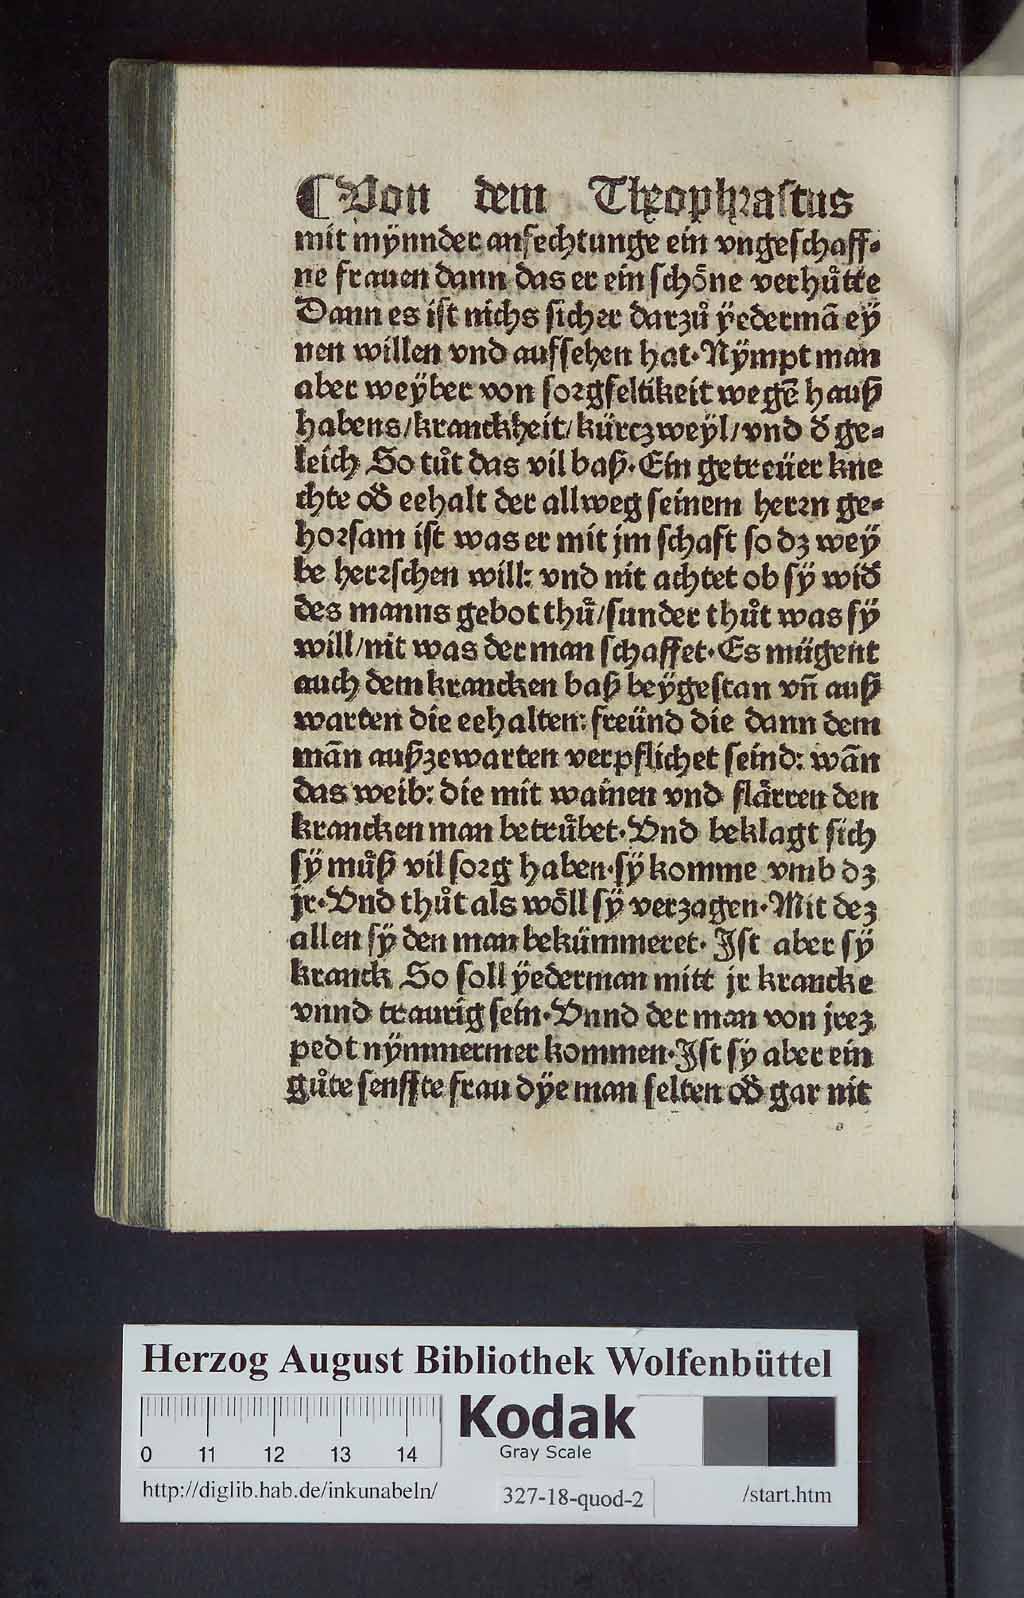 ⸿Von dem Theophrastus
mit mÿnnder anfechtunge ein vngeschaff⸗
ne frauen dann das er ein schöne verhuͤtte
Dann es ist nichs sicher darzuͦ ÿedermā eÿ
nen willen vnd aufsehen hat·Nÿmpt man
aber weÿber von sorgfeltikeit wegē hauß
habens/kranckheit/kürczweÿl/vnd ð ge⸗
leich So tuͦt das vil baß·Ein getreüer kne
chte oð eehalt der allweg seinem herrn ge⸗
horsam ist was er mit jm schaft so dz weÿ
be herrschen will: vnd nit achtet ob sÿ wið
des manns gebot thuͤ/sunder thuͦt was sÿ
will/nit was der man schaffet·Es mügent
auch dem krancken baß beÿgestan vn̄ auß
warten die eehalten: freünd die dann dem
mān außzewarten verpflichet seind: wān
das weib: die mit wainen vnd flärren den
krancken man betruͤbet·Vnd beklagt sich
sÿ muͦß vil sorg haben·sÿ komme vmb dz
jr·Vnd thuͦt als wöll sÿ verzagen·Mit dez
allen sÿ den man bekümmeret· Jst aber sÿ
kranck So soll ÿederman mitt jr krancke
vnnd traurig sein·Vnnd der man von jrez
pedt nÿmmermer kommen·Jst sÿ aber ein
guͦte senffte frau dÿe man selten oð gar nit
Herzog August Bibliothek Wolfenbüttel
Kodak
Gray Scale
0 11 12 13 14
http://diglib.hab.de/inkunabeln/ 327-18-quod-2 /start.htm